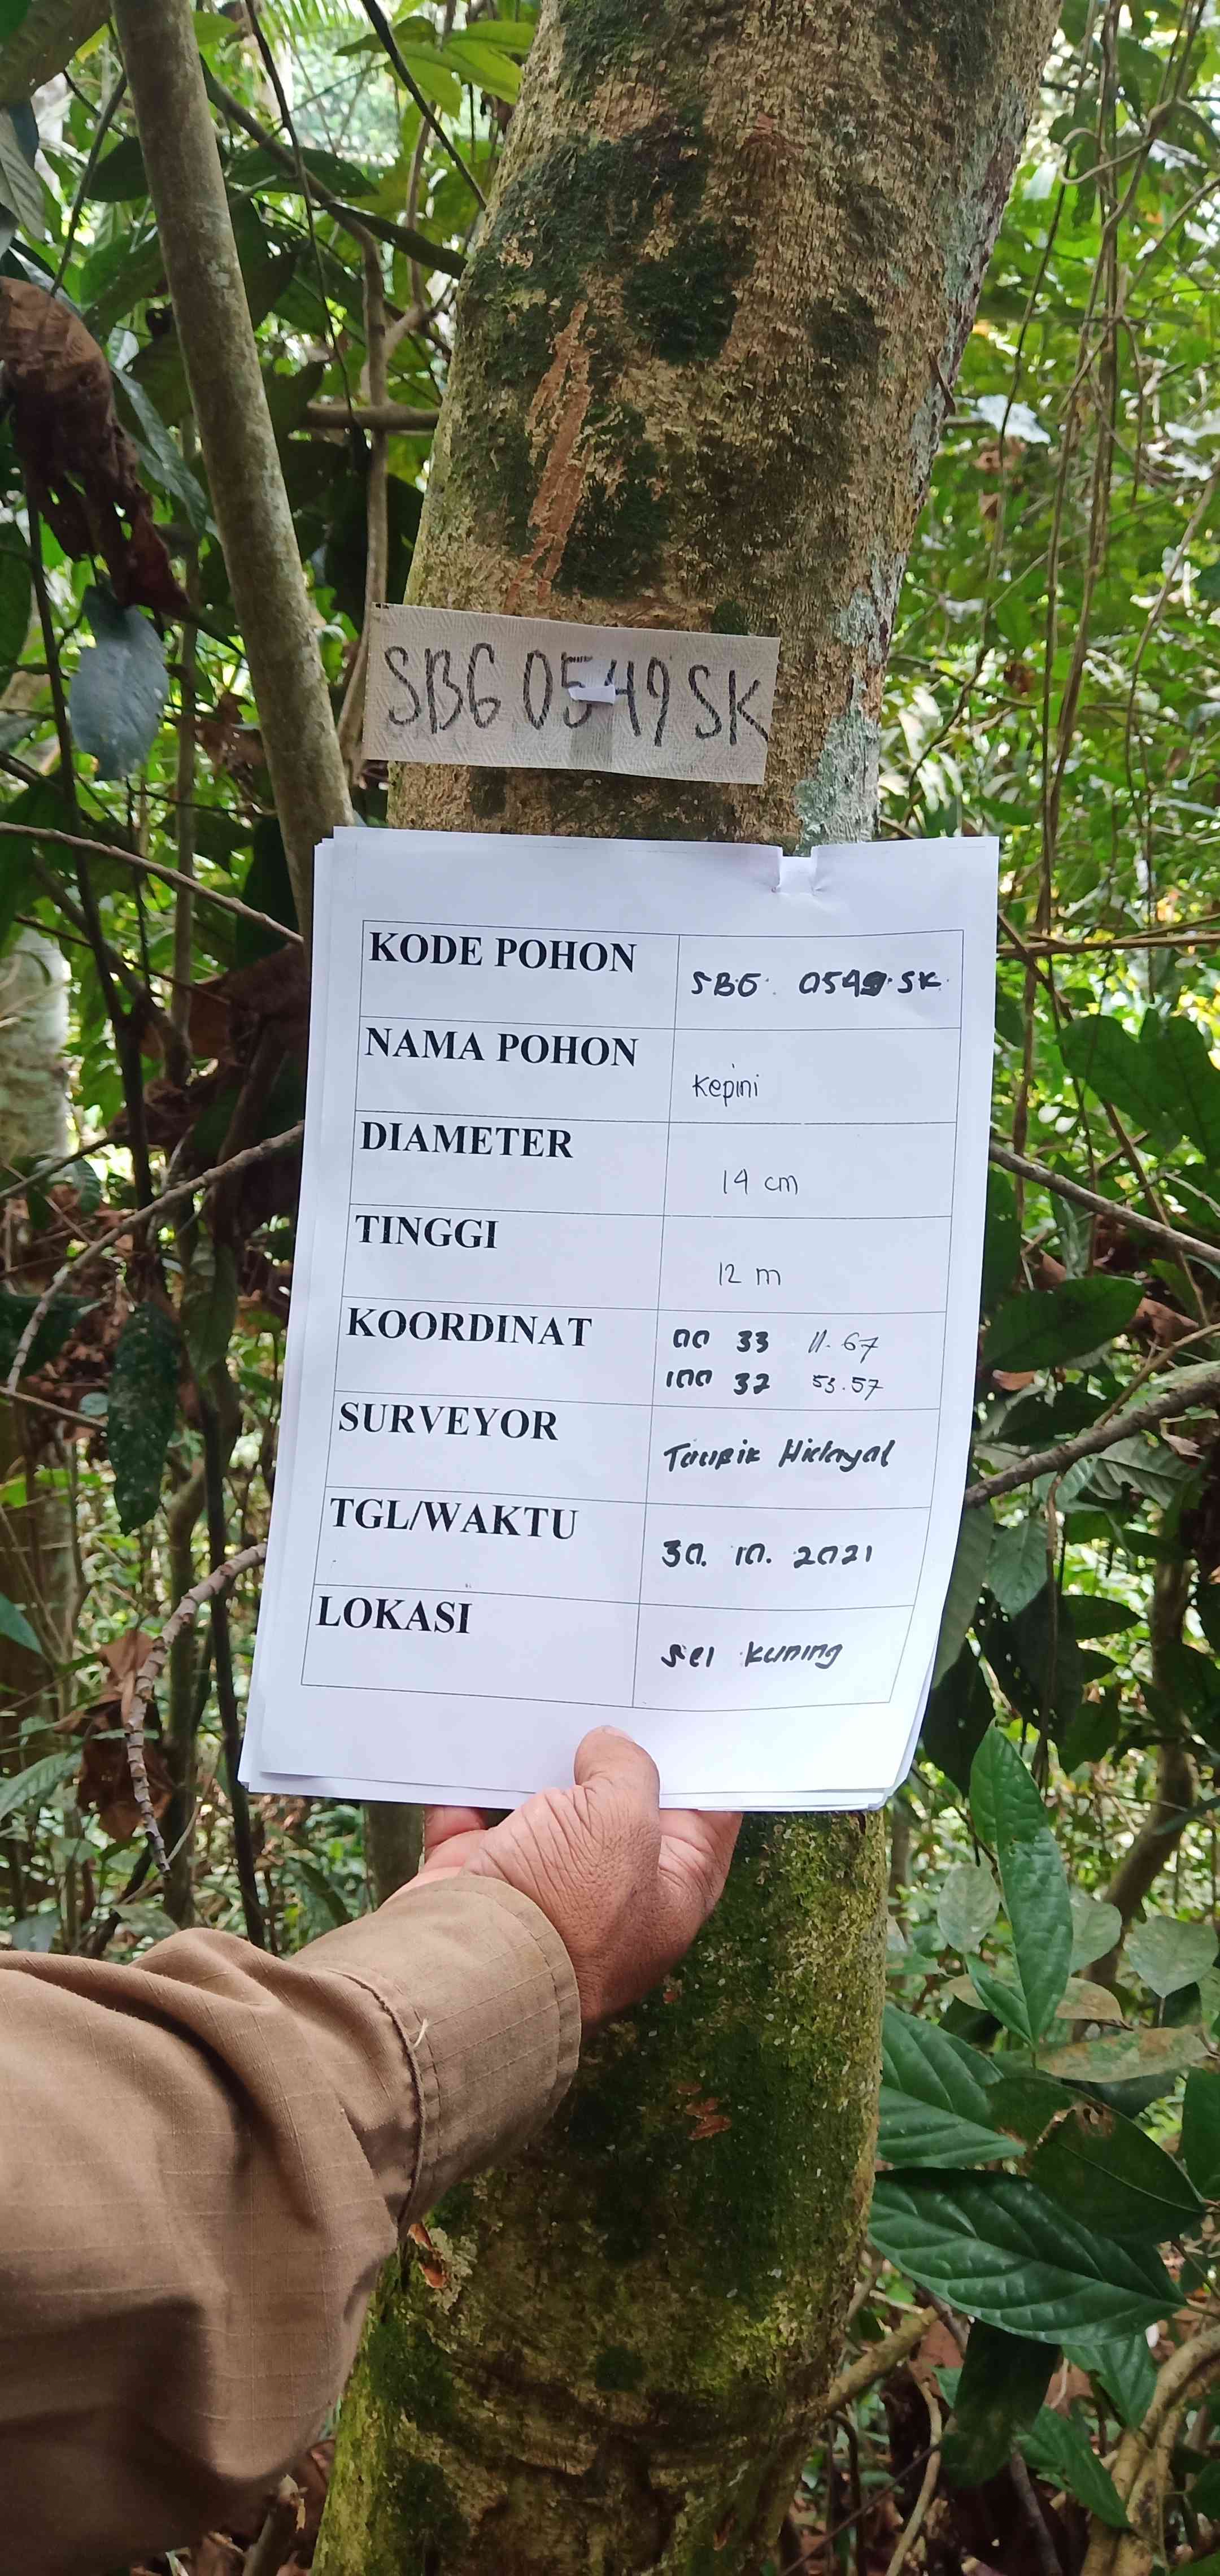 SBG 0549 SK
KODE POHON SBG. 0549.SK.
NAMA POHON Kepini
DIAMETER 14 cm
TINGGI 12 m
KOORDINAT 00 33 11.67
100 32 53.57
SURVEYOR Taupik Hidayat
TGL/WAKTU 30. 10. 2021
LOKASI Sei Kuning